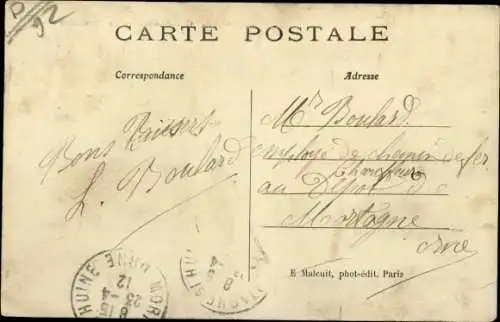 D
92
CARTE POSTALE
Correspondance
Adresse
Bons Baisers
L. Boulard
Mr Boulard
employé de chemin de fer
Chauffeur
au Dépot de
Mortagne
Orne
HUINE
8 15
23 -4
12
ORNE
MOR
E Malcuit, phot-édit. Paris